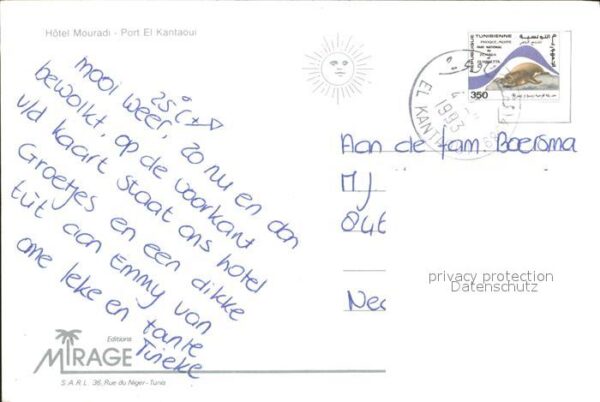 Hôtel Mouradi - Port El Kantaoui
25°C
mooi weer, zo nu en dan
bewolkt, op de voorkant
v/d kaart staat ons hotel
Groetjes en een dikke
tüt aan Emmy van
ome Ieke en tante
Tineke
Editions
MIRAGE
S.A.R.L. 36, Rue du Niger - Tunis
REPUBLIQUE TUNISIENNE
350
EL KANTA
1993
Aan de fam. Boersma
MJ
846
Ned
privacy protection
Datenschutz